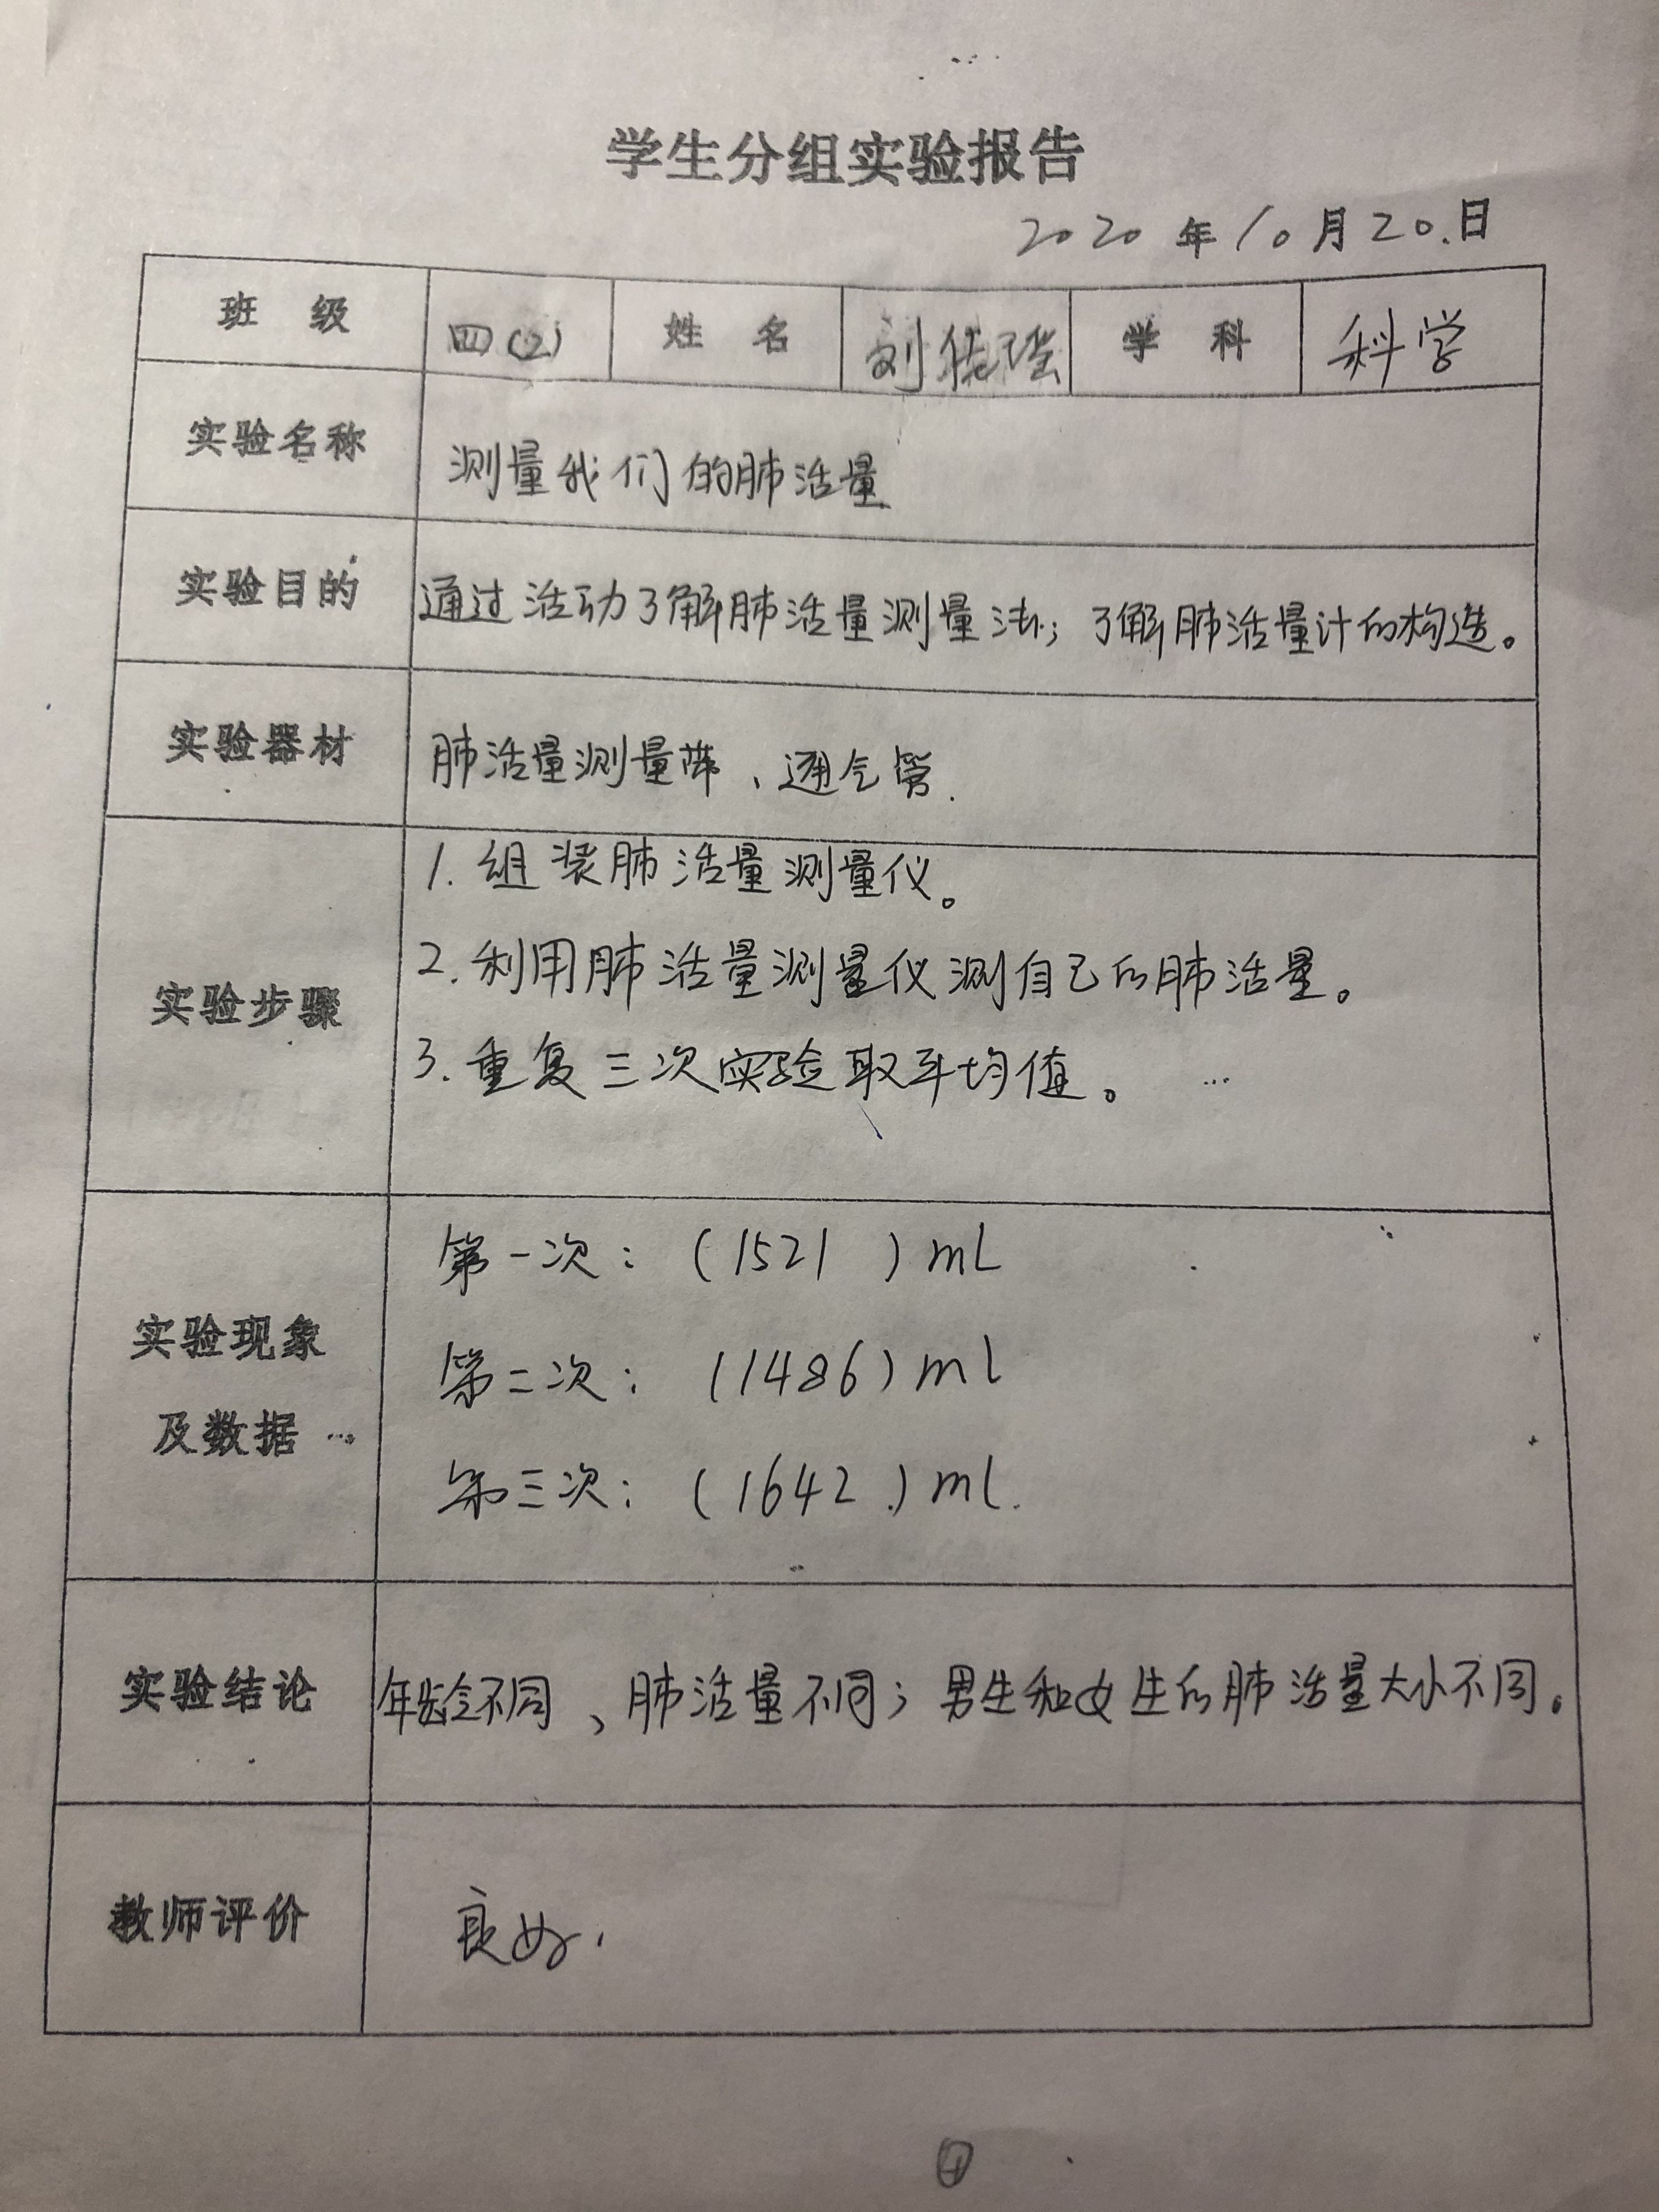 学生分组实验报告
2020年10月20.日
班 级 四(2) 姓 名 刘 学 科 科学
实验名称 测量我们的肺活量
实验目的 通过活动了解肺活量测量法;了解肺活量计的构造。
实验器材 肺活量测量、通气管.
1.组装肺活量测量仪。
实验步骤 2.利用肺活量测量仪测自己的肺活量。
3.重复三次实验取平均值。
第一次:(1521 )mL
实验现象
第二次:(1486)ml
及数据
第三次:(1642 )ml.
实验结论 年龄不同、肺活量不同;男生和女生的肺活量大小不同。
教师评价 良好.